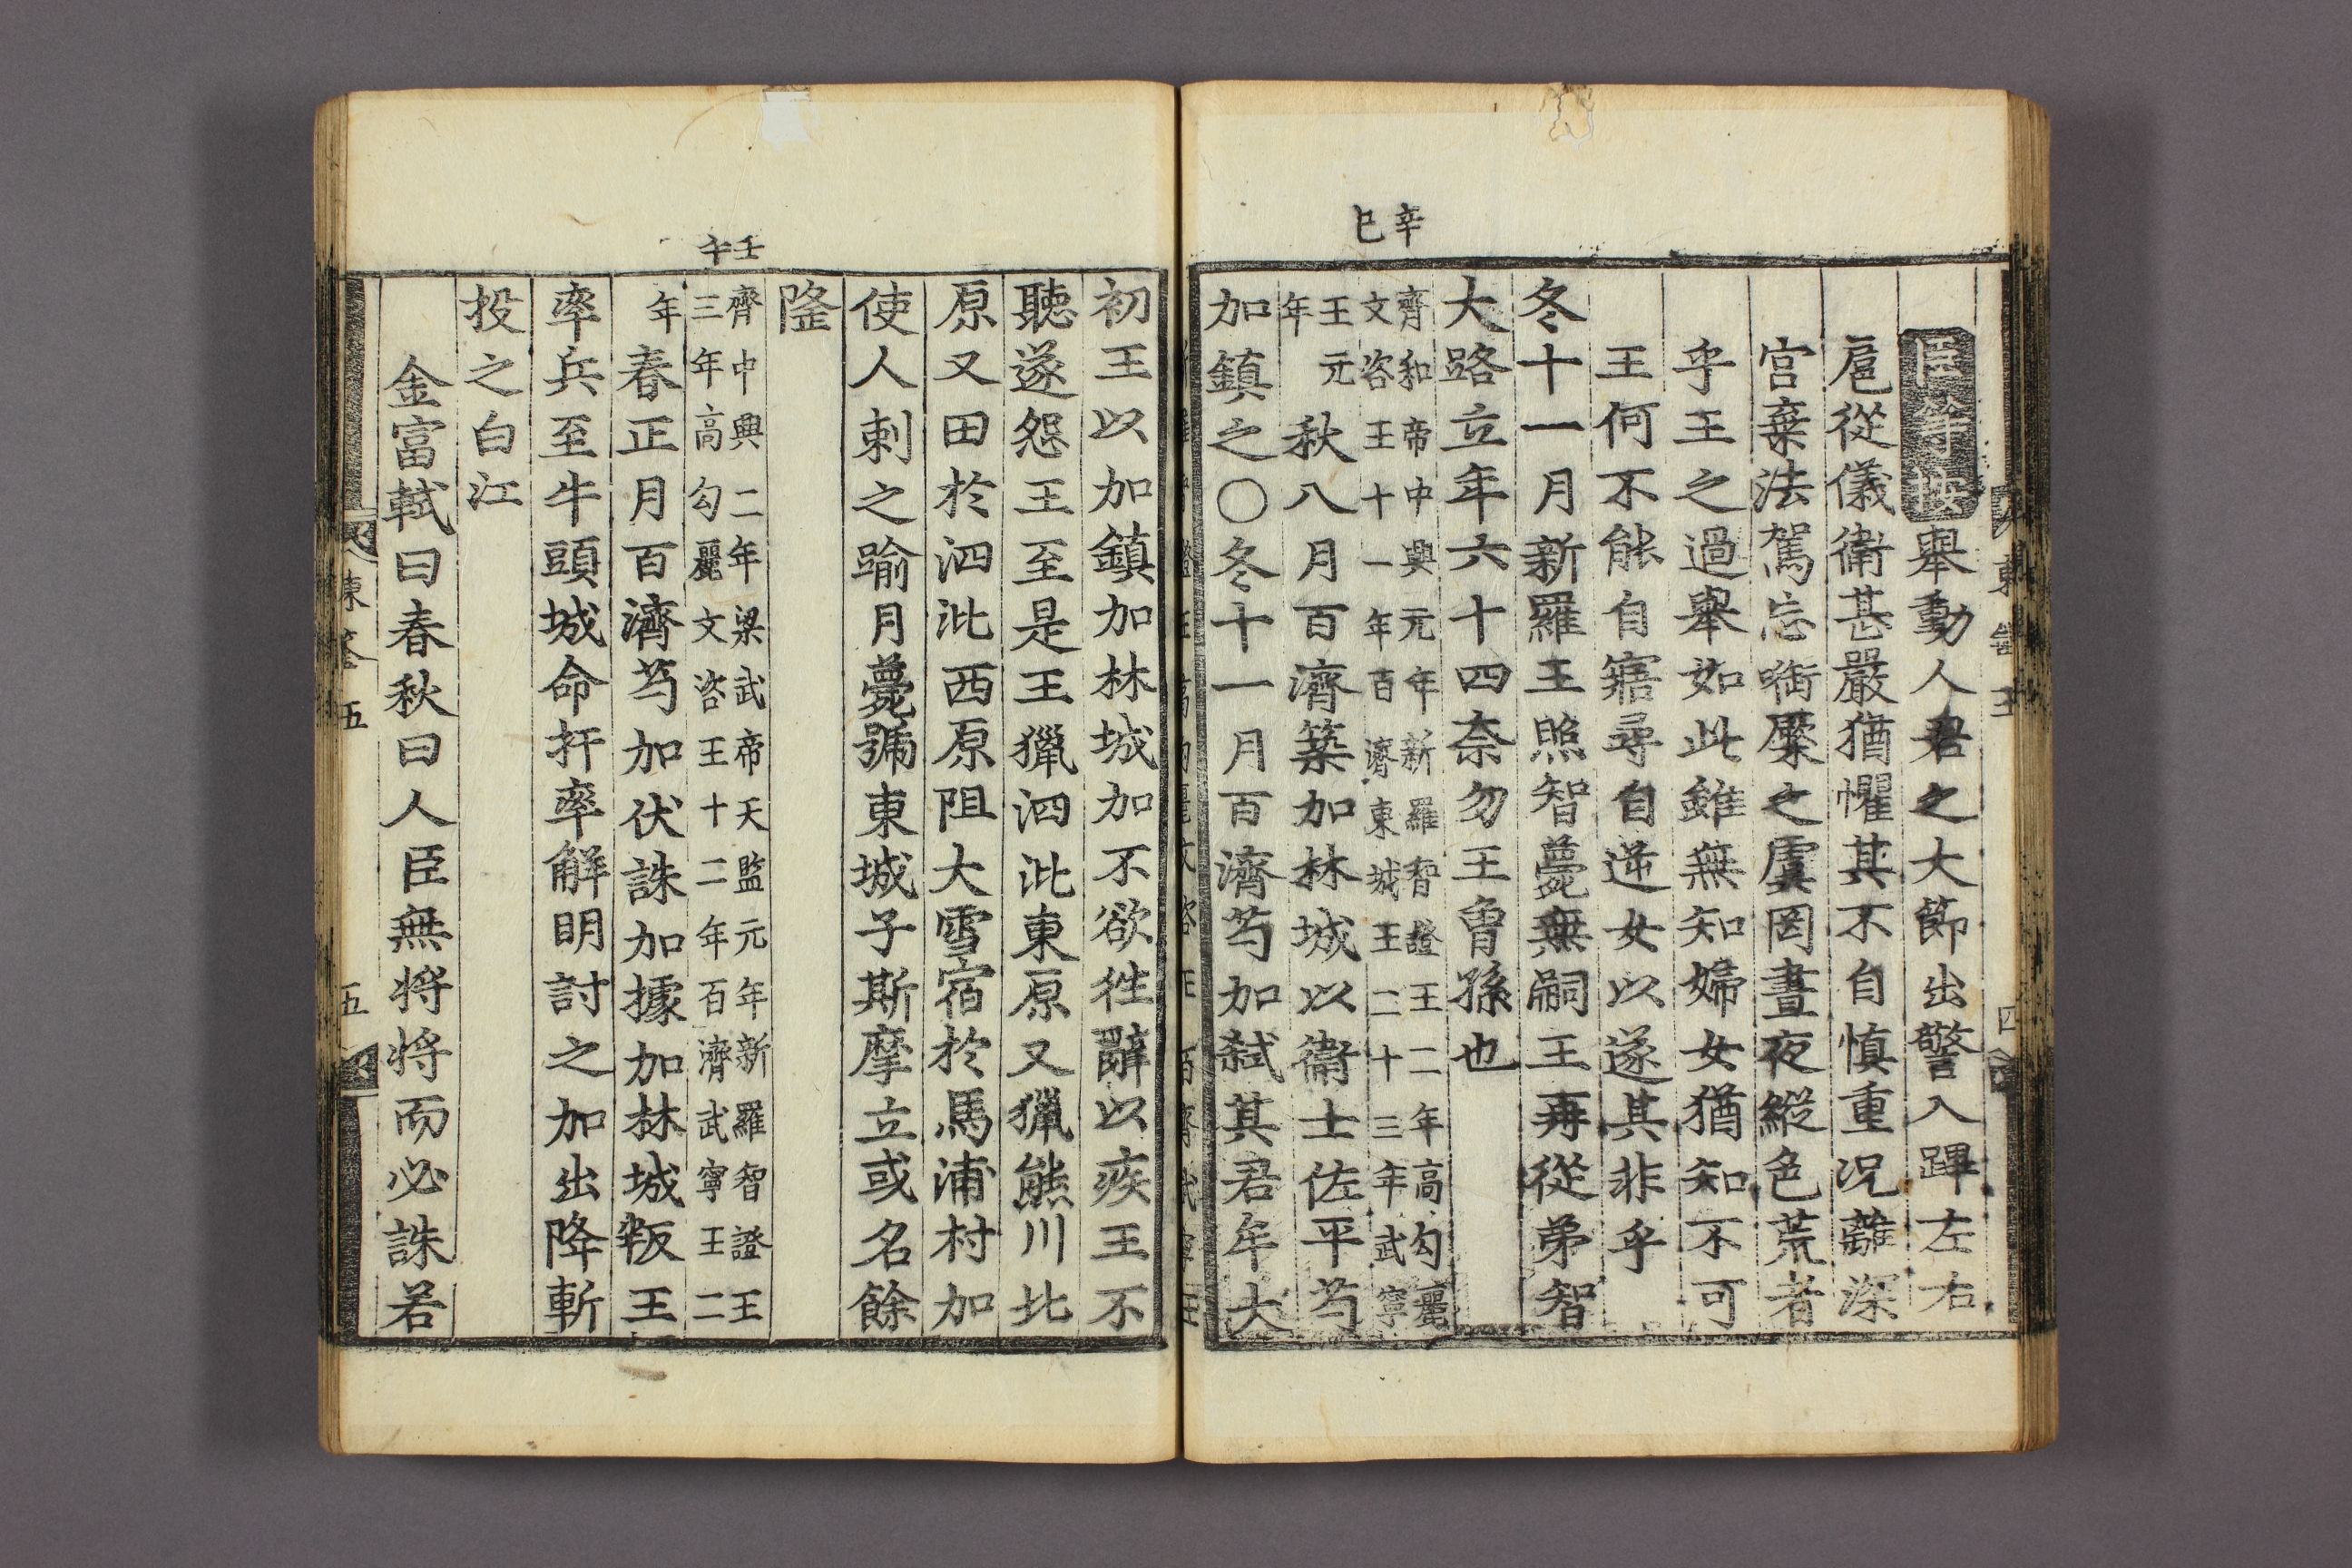 臣等按舉動人君之大節出警入蹕左右
扈從儀衛甚嚴猶懼其不自慎重况離深
宮棄法駕忘銜橜之虞罔晝夜縱色荒者
乎王之過擧如此雖無知婦女猶知不可
王何不能自寤尋自逆女以遂其非乎
冬十一月新羅王照智薨無嗣王再從弟智
大路立年六十四奈勿王曾孫也
辛巳
齊和帝中興元年新羅智證王二年高勾麗
文咨王十一年百濟東城王二十三年武寧
王元
年
元秋八月百濟築加林城以衛士佐平芶
加鎮之〇冬十一月百濟芶加弑其君牟大
初王以加鎮加林城加不欲徃辭以疾王不
聽遂怨王至是王獵泗沘東原又獵熊川北
原又田於泗沘西原阻大雪宿於馬浦村加
使人刺之踰月薨號東城子斯摩立或名餘
隆
壬午
齊中興二年梁武帝天監元年新羅智證王
三年高勾麗文咨王十二年百濟武寧王二
年春正月百濟芶加伏誅加據加林城叛王
率兵至牛頭城命扞率解明討之加出降斬
投之白江
金富軾曰春秋曰人臣無將將而必誅若
東 五
五